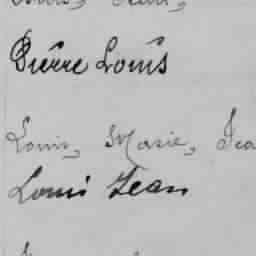 Pierre Louis
Louis, Marie, Jea
Louis Jean